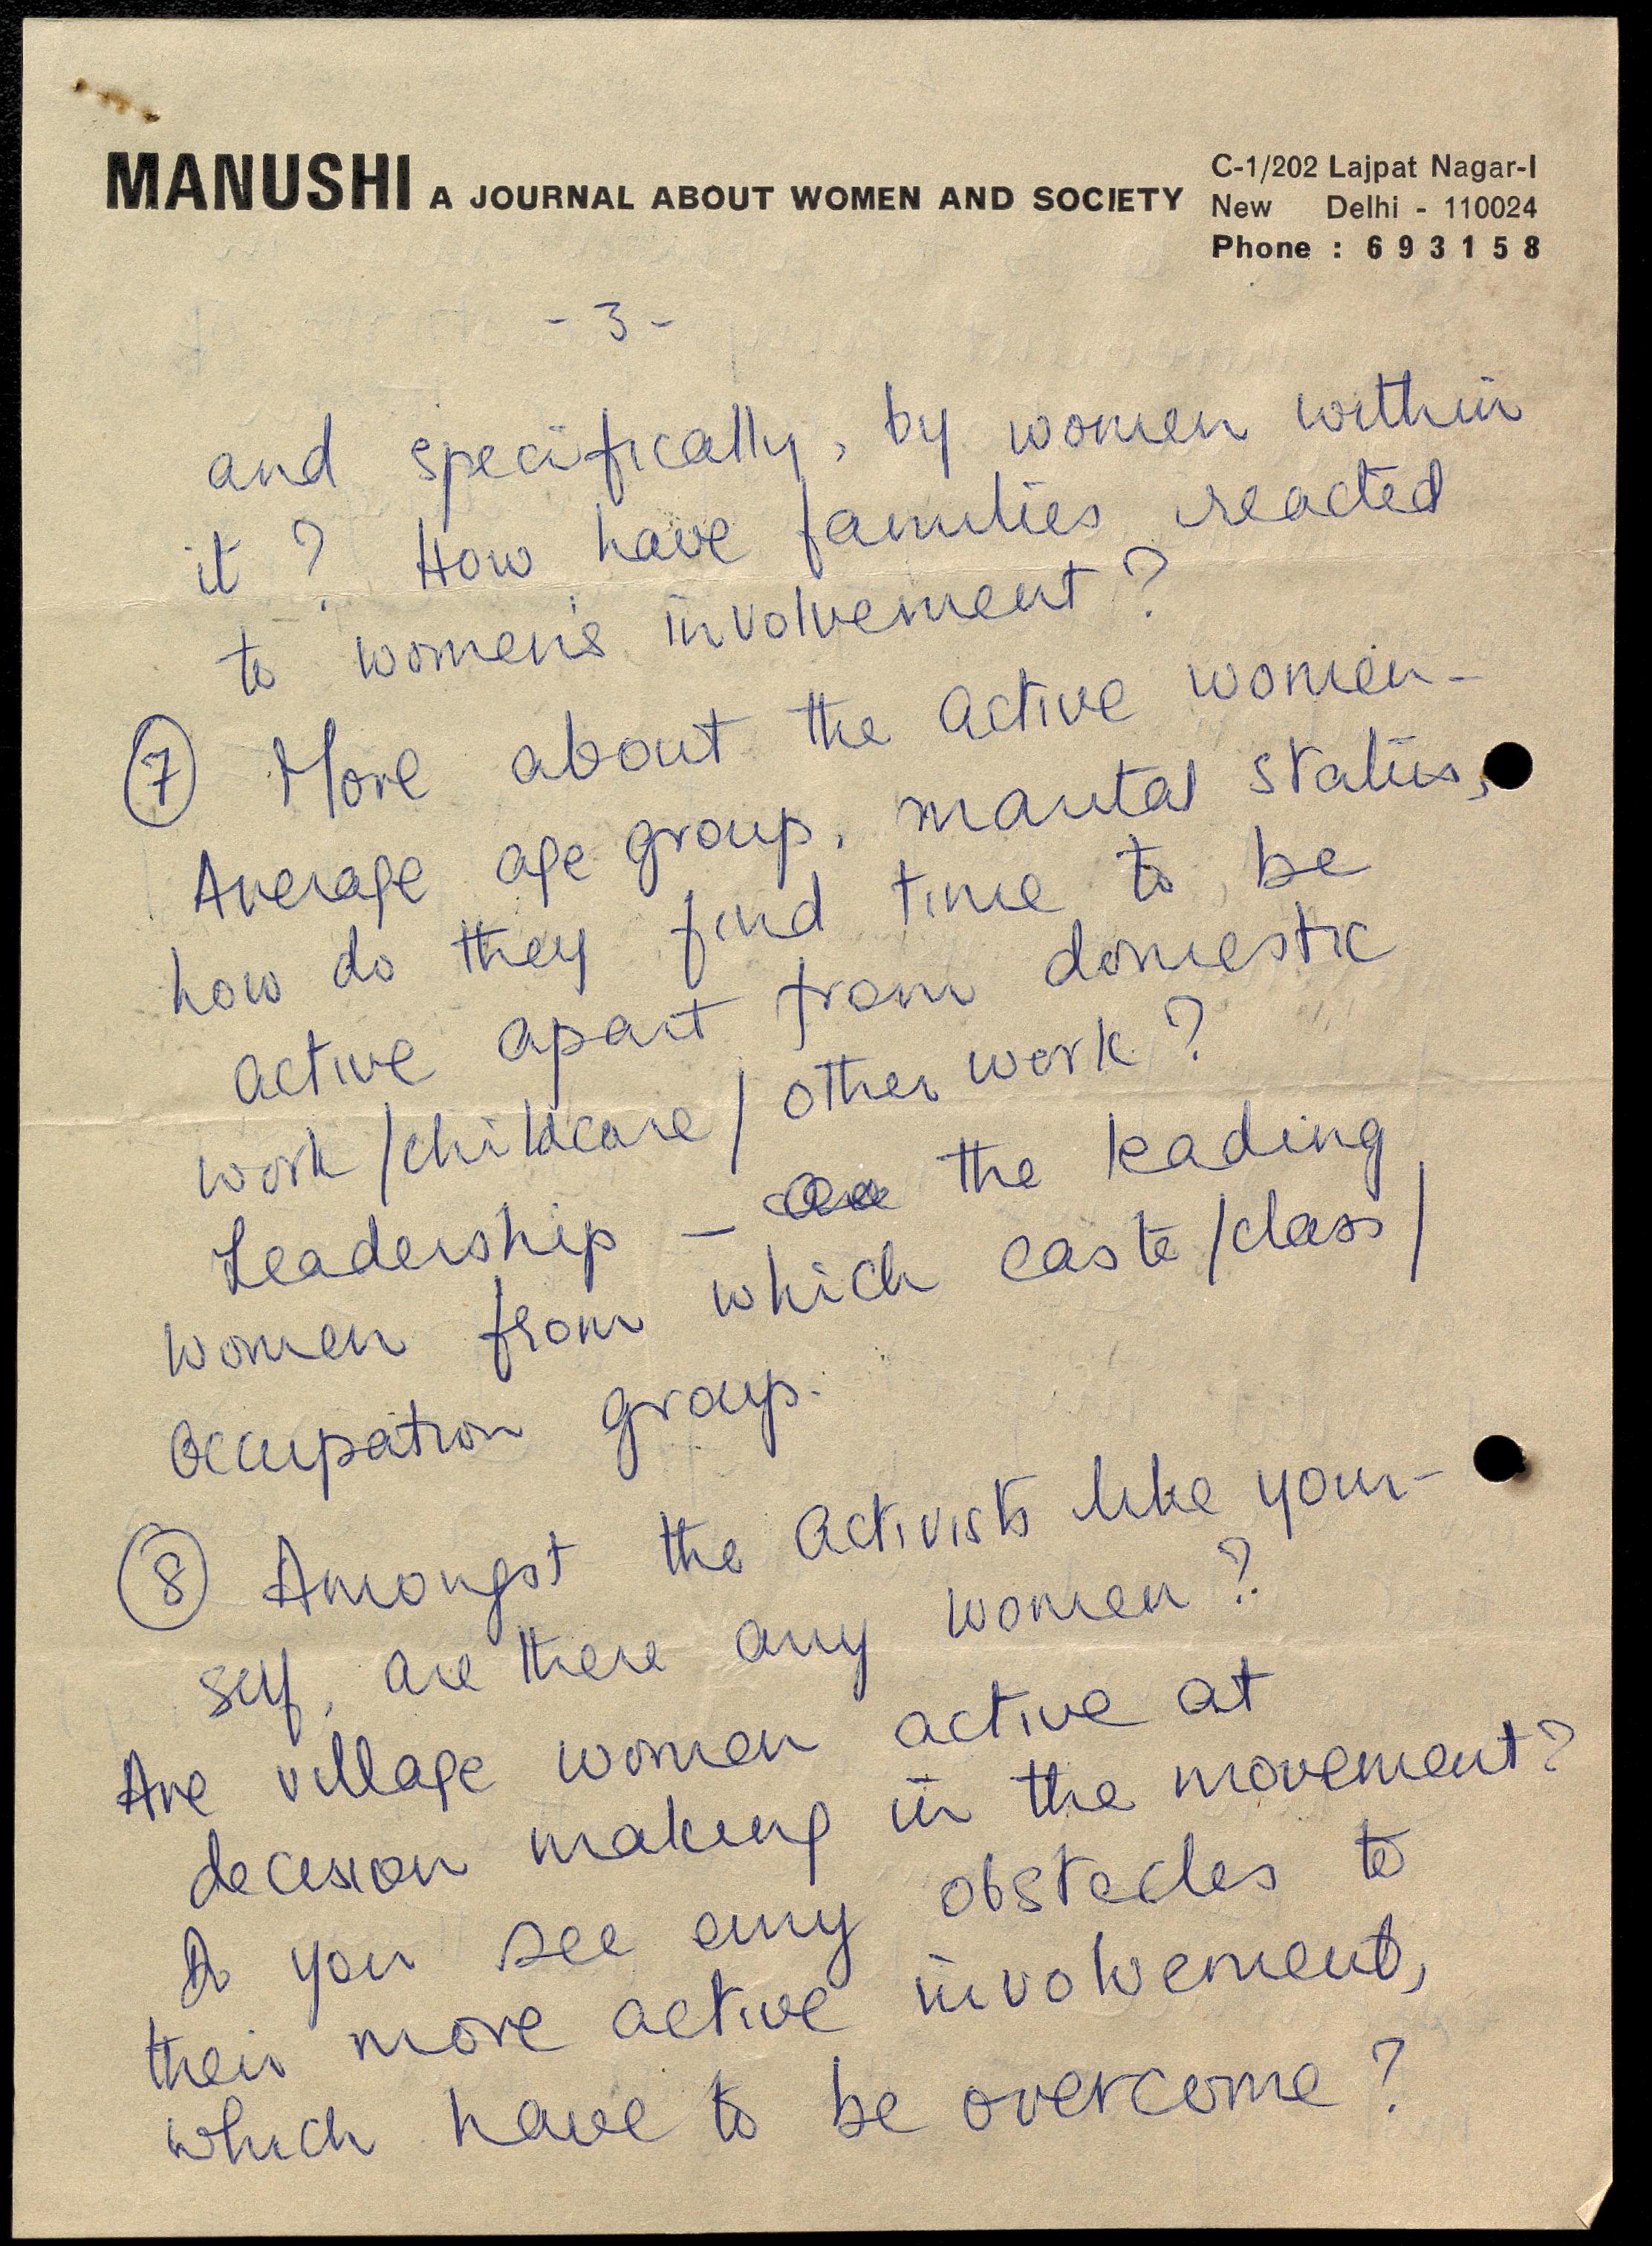 MANUSHI A JOURNAL ABOUT WOMEN AND SOCIETY
C-1/202 Lajpat Nagar-I
New Delhi - 110024
Phone : 693158
- 3 -
and specifically, by women within
it ? How have families reacted
to women's involvement ?
7 More about the active women -
Average age group, marital status,
how do they find time to be
active apart from domestic
work / childcare / other work ?
Leadership - the leading
women from which caste / class /
occupation group.
8 Amongst the activists like your-
self, are there any women ?
Are village women active at
decision making in the movement?
Do you see any obstacles to
their more active involvement,
which have to be overcome ?